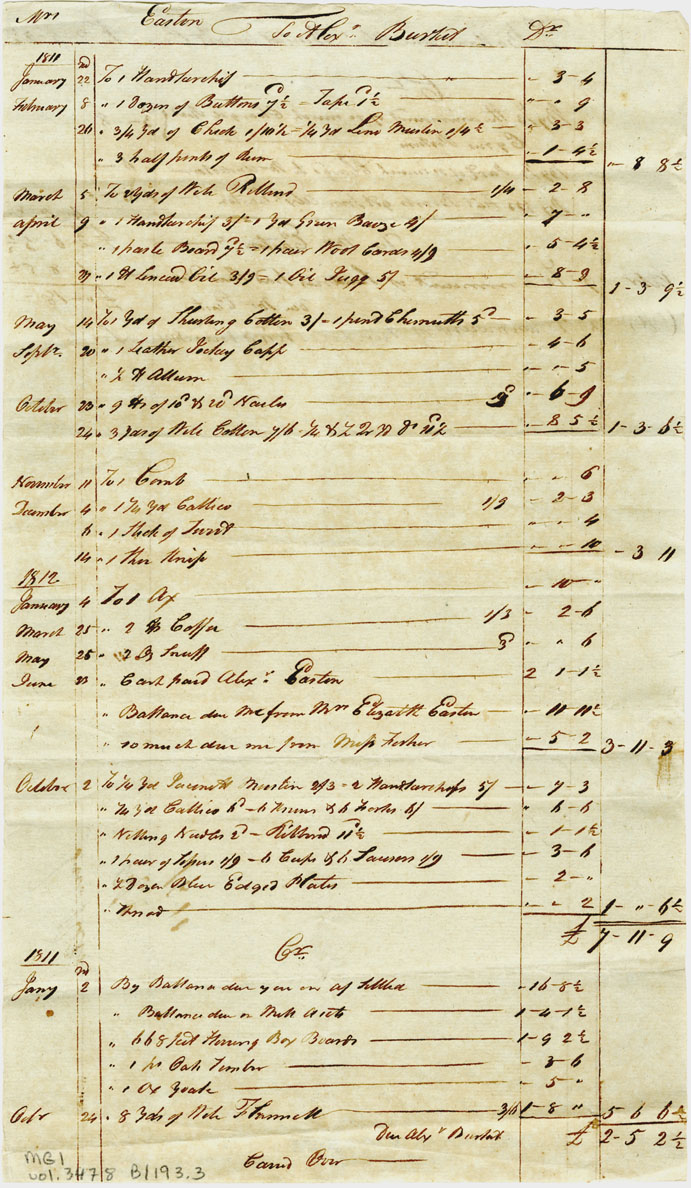 Mrs Easton To Alexr. Burket Dr
1811
January 22d To 1 Handkerchif " - 3 - 4
February 8 " 1 Dozen of Buttons 7½ = Tape 1½ " " 9
26 " 3/4 yd of Check 1/10½ = ¼ yd Leno Muslin 1/4½ - 3 - 3
" 3 half pints of Rum - 1 - 4½ " - 8 8½
March 5 To 2 yds of Wite Ribbond 1/4 - 2 - 8
April 9 " 1 Handkerchif 3/ = 1 yd Green Baeze 4/ - 7 - "
" 1 paste Board 7½ = 1 pair Wool Cards 4/9 - 5 - 4½
" 1 Linceed Oil 3/9 = 1 Oil Jugg 5/ - 8 - 9 1 - 3 - 9½
May 14 To 1 yd of Shirting Cotton 3/ = 1 5d - 3 - 5
Septbr. 20 " 1 Leather Jockey Capp - 4 - 6
" ½ lb Allum - " - 5
October 23 " 9 lbs of 10d & 20d Nailes 9d - 6 - 9
24 " 3 yds of Wite Cotton 7/6 11½ - 8 5½ 1 - 3 - 6½
November 11 To 1 Comb " " 6
December 4 " 1 ¼ yd Callico 1/9 - 2 - 3
6 " 1 Stick of Twist " " 4
14 " 1 Knife - " - 10 - 3 11
1812
January 4 To 1 Ax - 10 - "
March 25 " 2 lb Coffee 1/3 - 2 - 6
May 25 " 2 Oz Snuff 3d - " 6
June 23 " Cash paid Alexr. Easton 2 1 - 1½
" Ballance due me from Mrs Elizabth Easton - 11 - 11½
" so much due me from Miss - 5 2 3 - 11 - 3
October 2 To ¼ yd Muslin 2/3 = 2 Handkerchifs 5/ - 7 - 3
" ¼ yd Callico 6d - 6 Knives & 6 Forks 6/ " 6 - 6
" Netting Needles 2d - Ribbond 11½ - 1 - 1½
" 1 pair of 1/9 - 6 Cups & 6 Sausers 1/9 - 3 - 6
" ½ Dozen Blew Edged Plates - 2 - "
" thread - " 2 1 - " - 6½
£ 7 - 11 - 9
1811 Cr.
Jany 2nd By Ballance due you on a/ Settled - 16 - 8½
" Ballance due on 1 - 4 - 1½
" 668 feet Herring Box Boards 1 - 9 2½
" 1 ps Oak Timber - 3 - 6
" 1 Ox Yoak - 5 "
Octr 24 " 8 Yds of Wite Flannell 3/6 1 - 8 " 5 6 6½
Due Alexr Burket £ 2 - 5 2½
Carred Over
MG1
vol. 3478 B/193.3